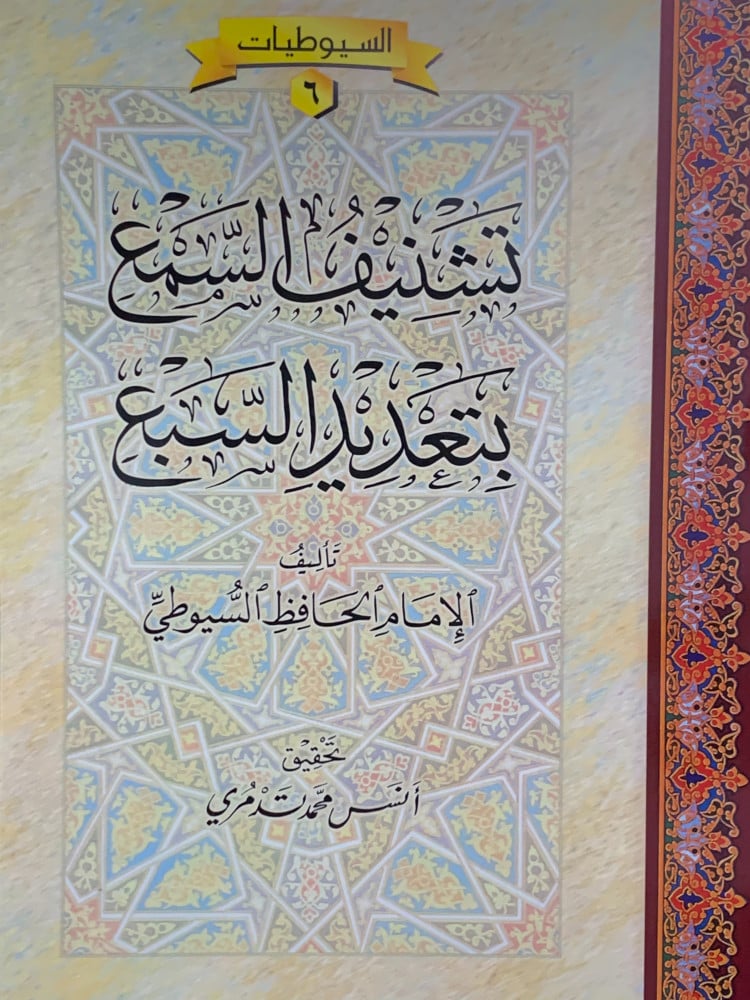 السيوطيات
٦
تَشْنِيفُ السَّمْعِ
بِتَعْدِيدِ السَّبْعِ
تَأليفُ
الإِمَامِ الحَافِظِ السُّيوطيِّ
تَحْقِيق
أنس محمد تدمُري